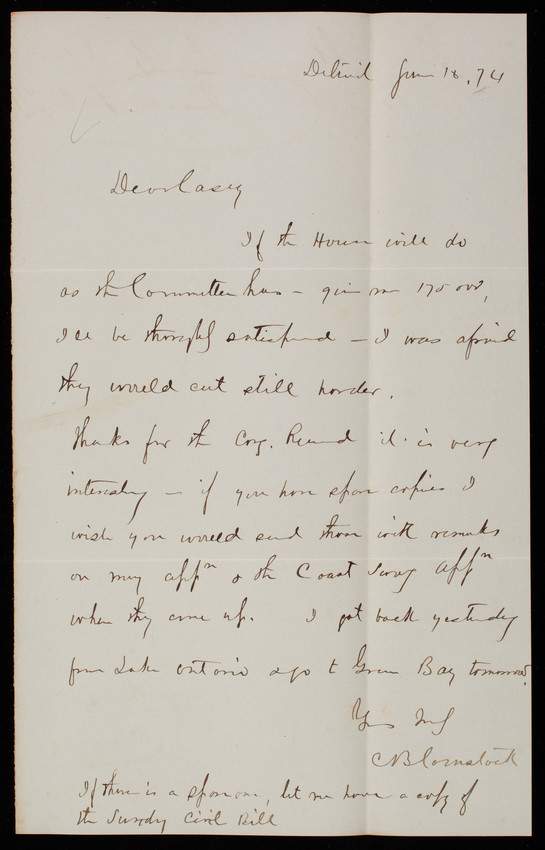 Detroit June 18, 74
Dear Casey
If the House will do
as the Committee has – give me 175 000,
I'll be thoroughly satisfied – I was afraid
they would cut still harder.
Thanks for the Cong. Record it is very
interesting – if you have spare copies I
wish you would send those with remarks
on my appn & the Coast Survey appn
when they come up. I got back yesterday
from Lake Ontario & go to Green Bay tomorrow.
Yrs truly
CB Comstock
If there is a spare one, let me have a copy of
the Sundry Civil Bill